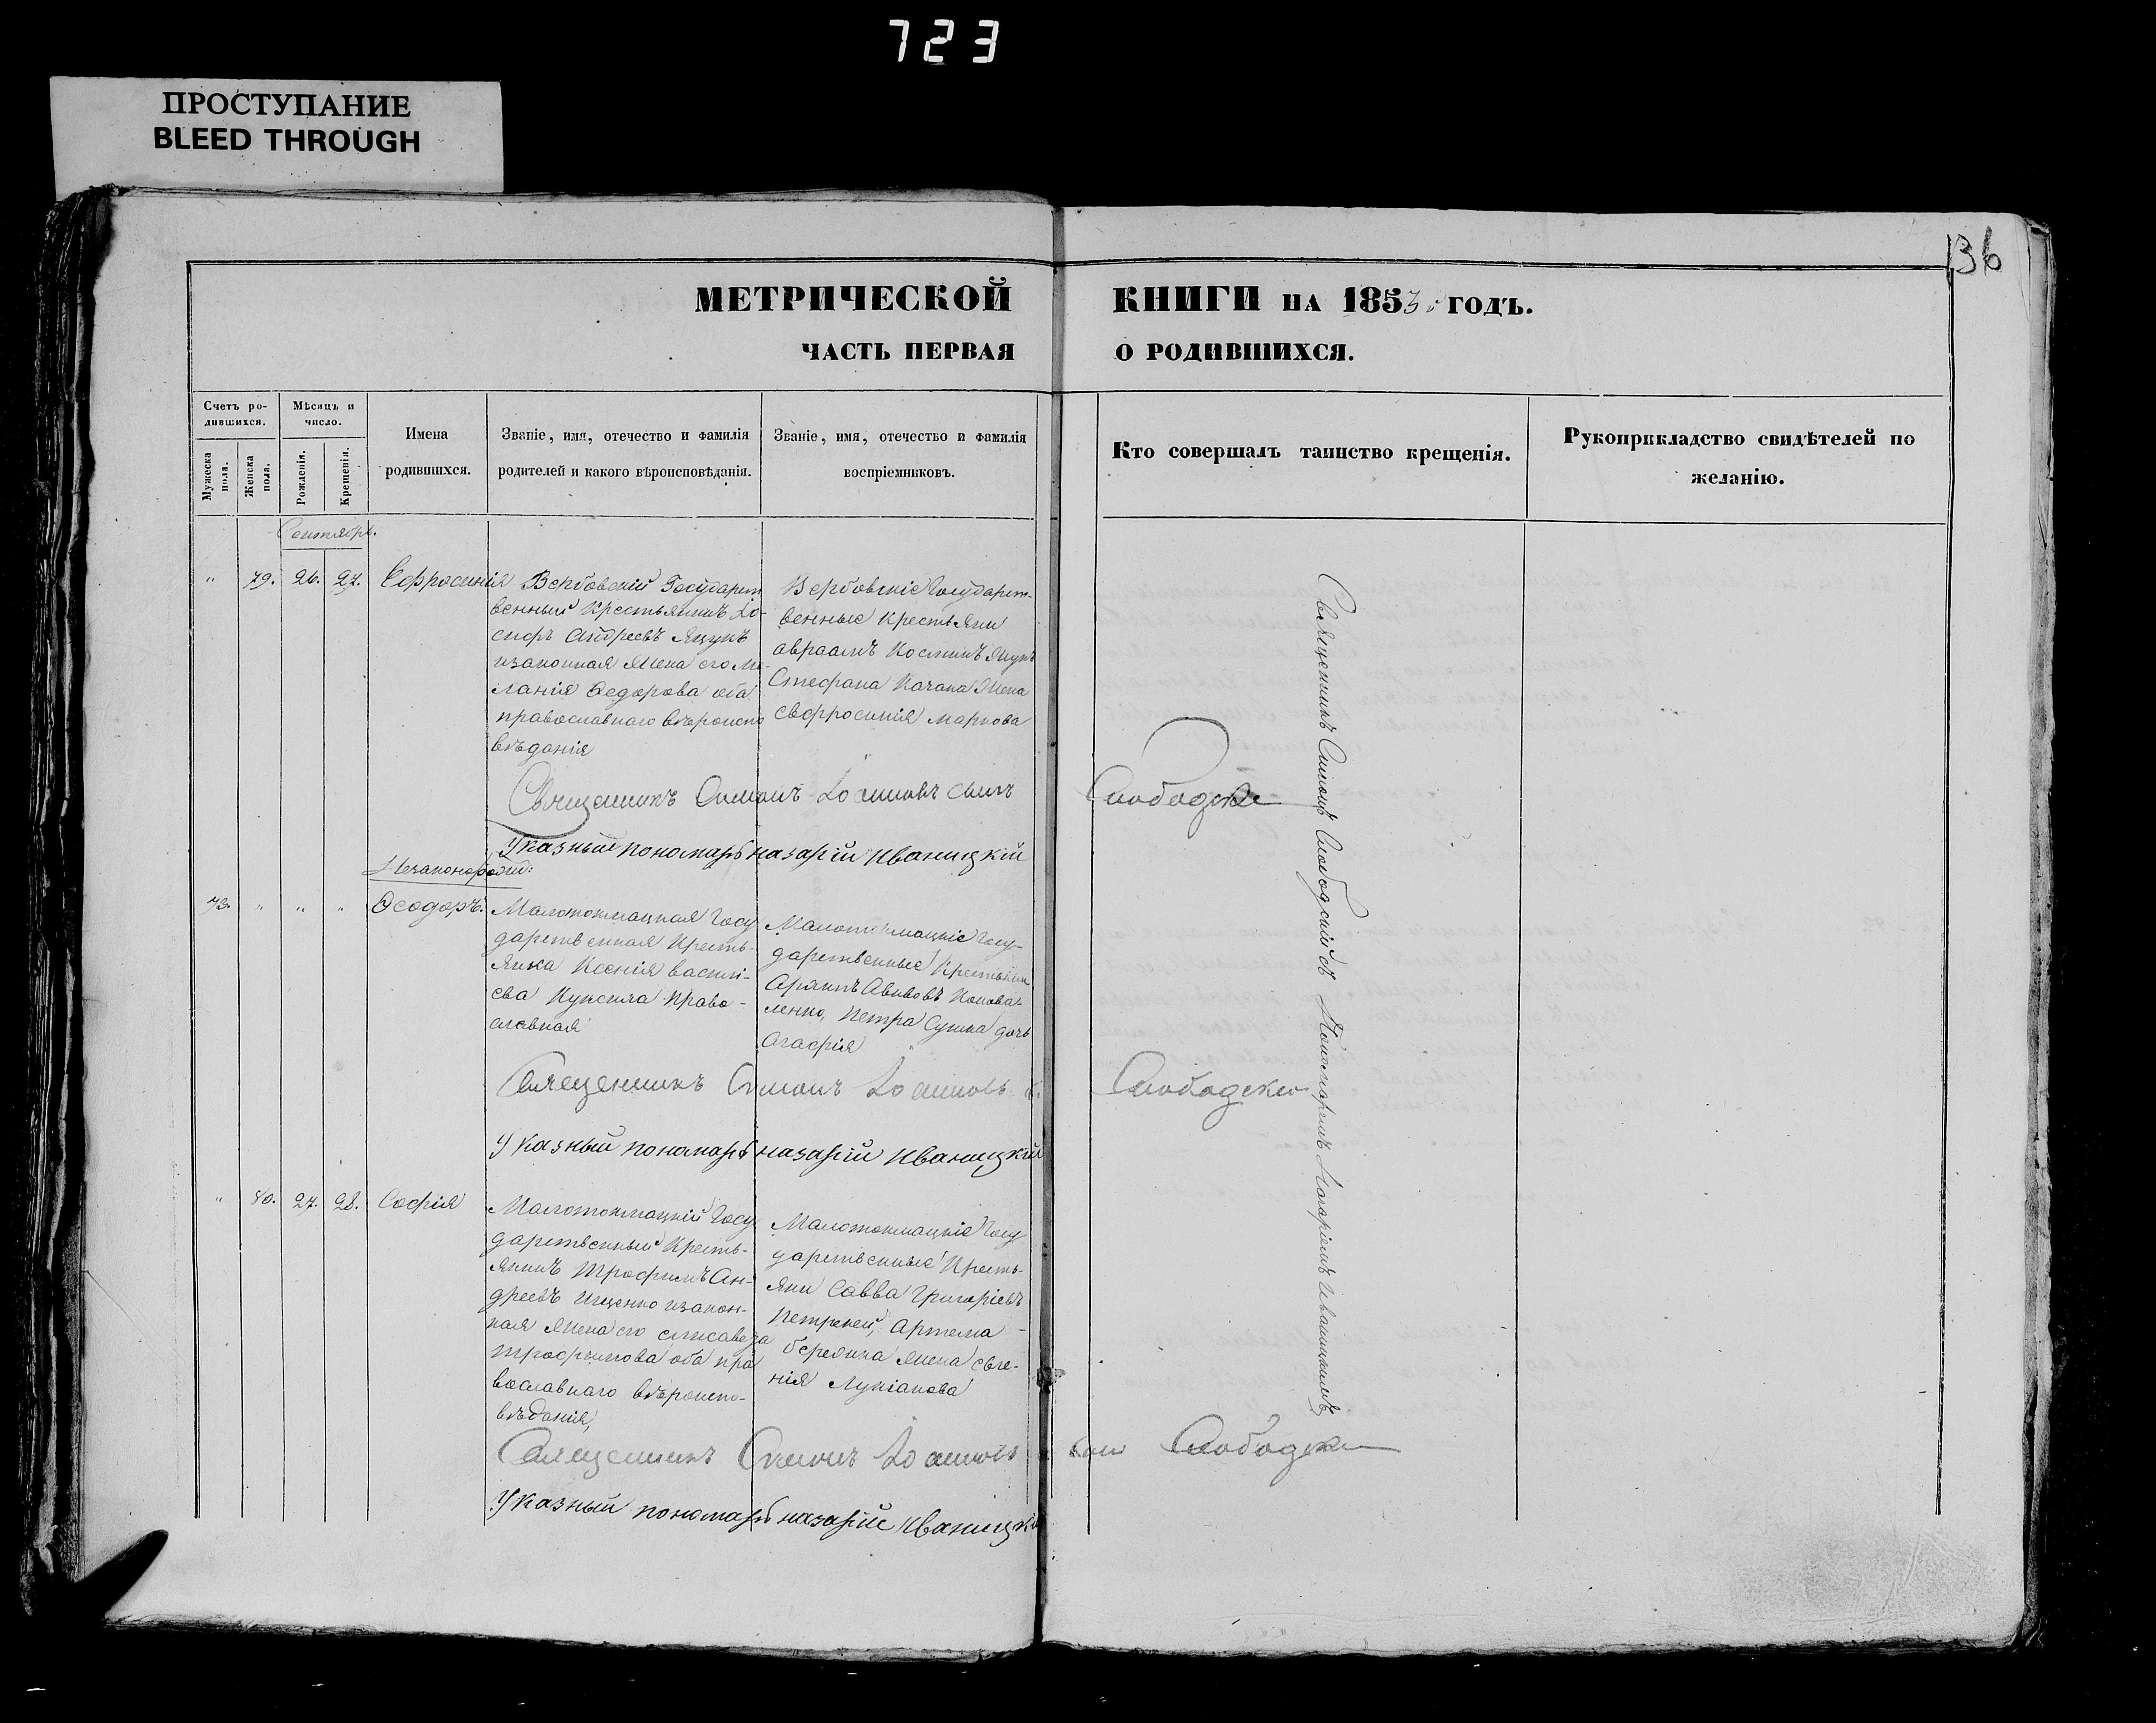 723
ПРОСТУПАНИЕ
BLEED THROUGH
136
МЕТРИЧЕСКОЙ КНИГИ НА 1853 ГОДЪ.
ЧАСТЬ ПЕРВАЯ О РОДИВШИХСЯ.
Счетъ ро-
дившихся.
Мужеска пола.
Женска пола.
Мѣсяцъ и
число.
Рожденія.
Крещенія.
Имена
родившихся.
Званіе, имя, отечество и фамилія
родителей и какого вѣроисповѣданія.
Званіе, имя, отечество и фамилія
воспріемниковъ.
Кто совершалъ таинство крещенія.
Рукоприкладство свидѣтелей по
желанію.
Сентябрь.
" 79. 26. 27. Ефросинія
Вербовскій Государст
венный Крестьянинъ Іо-
сифъ Андреевъ Яцунъ
изаконная Жена его Ме-
ланія Федорова оба
православнаго вѣроиспо
вѣданія
Вербовскіе Государст-
венные Крестьяни
авраамъ Косминъ Яцунъ
Стефана Качана Жена
евфросинія маркова
Священникъ Симонъ Іоанновъ сынъ Слободскі
Указный пономарь назарій Иваницкій
Незаконорожд:
73. " " " Ѳеодоръ.
Малотокмацкая Госу
дарственная Кресть-
янка Ксенія васили-
ева Куксила Право-
славная
Малотокмацкіе Госу-
дарственные Крестьяни
Авивовъ Конова-
ленко, Петра Сушка дочь
Агафія
Священникъ Симонъ Іоанновъ с. Слободскі
Указный пономарь назарій Иваницкій
" 80. 27. 28. Софія
Малотокмацкій Госу
дарственный Кресть-
янинъ Трофимъ Ан-
дреевъ Ищенко изакон-
ная Жена его елисавета
трофимова оба пра
вославнаго вѣроиспо-
вѣданія,
Малотокмацкіе Госу
дарственные Кресть-
яни Савва Григоріевъ
Петреней, Артема
Жена евге-
нія Лукіанова
Священникъ Симонъ Іоанновъ Слободскі
Указный пономарь назарій Иваницкі
Священникъ Симонъ Слободскій съ Пономаремъ Назаріемъ Иваницкимъ